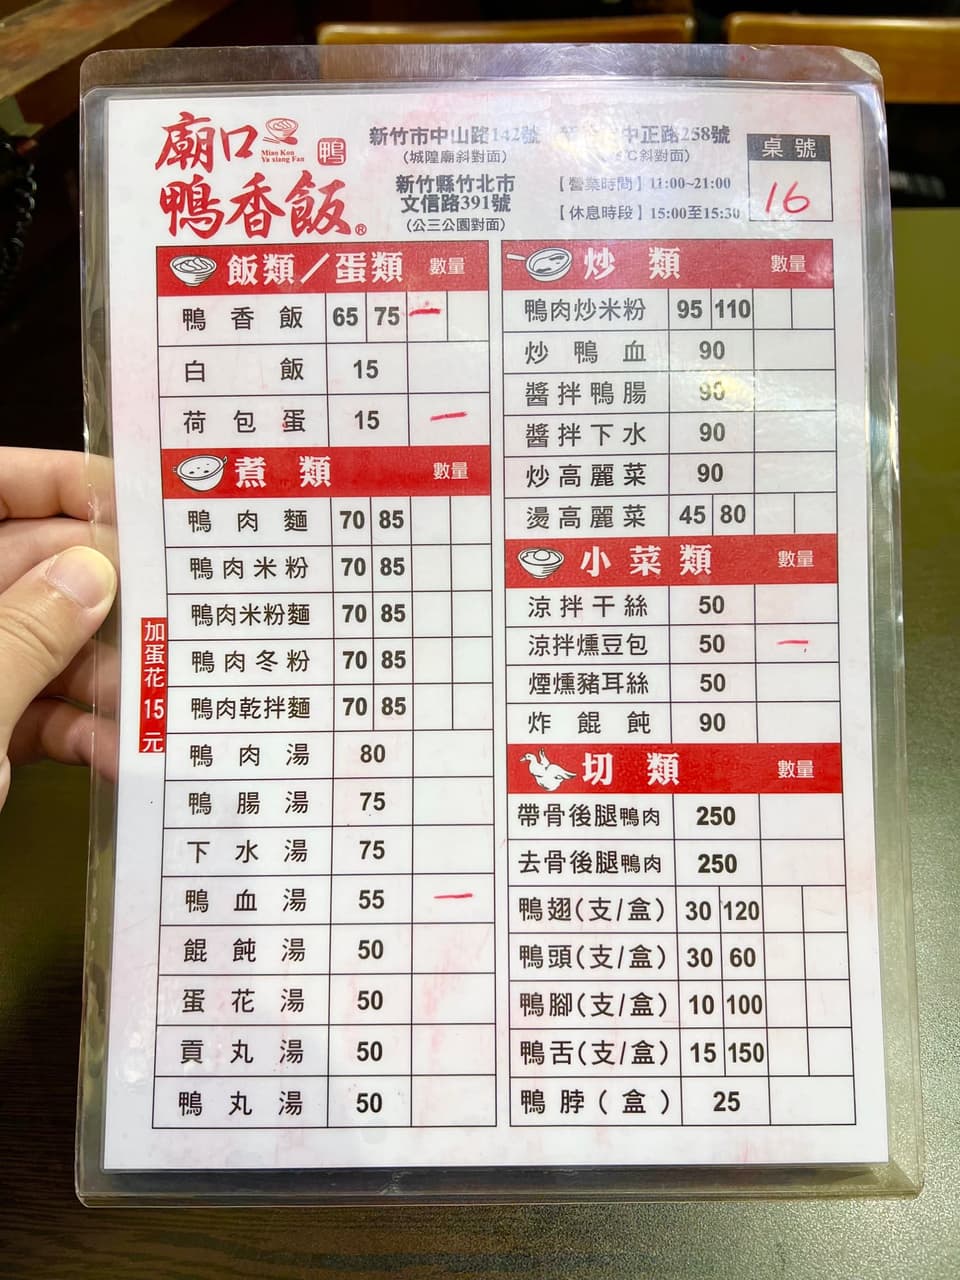 廟口
Miao Kou
Ya xiang Fan
鴨
鴨香飯®
新竹市中山路142號
(城隍廟斜對面)
新竹縣竹北市
文信路391號
(公三公園對面)
中正路258號
斜對面)
【營業時間】11:00~21:00
【休息時段】15:00至15:30
桌號
16
飯類/蛋類 數量
鴨香飯 65 75 一
白飯 15
荷包蛋 15 一
煮類 數量
鴨肉麵 70 85
鴨肉米粉 70 85
鴨肉米粉麵 70 85
鴨肉冬粉 70 85
鴨肉乾拌麵 70 85
鴨肉湯 80
鴨腸湯 75
下水湯 75
鴨血湯 55 一
餛飩湯 50
蛋花湯 50
貢丸湯 50
鴨丸湯 50
加蛋花15元
炒類 數量
鴨肉炒米粉 95 110
炒鴨血 90
醬拌鴨腸 90
醬拌下水 90
炒高麗菜 90
燙高麗菜 45 80
小菜類 數量
涼拌干絲 50
涼拌燻豆包 50 一
煙燻豬耳絲 50
炸餛飩 90
切類 數量
帶骨後腿鴨肉 250
去骨後腿鴨肉 250
鴨翅(支/盒) 30 120
鴨頭(支/盒) 30 60
鴨腳(支/盒) 10 100
鴨舌(支/盒) 15 150
鴨脖(盒) 25